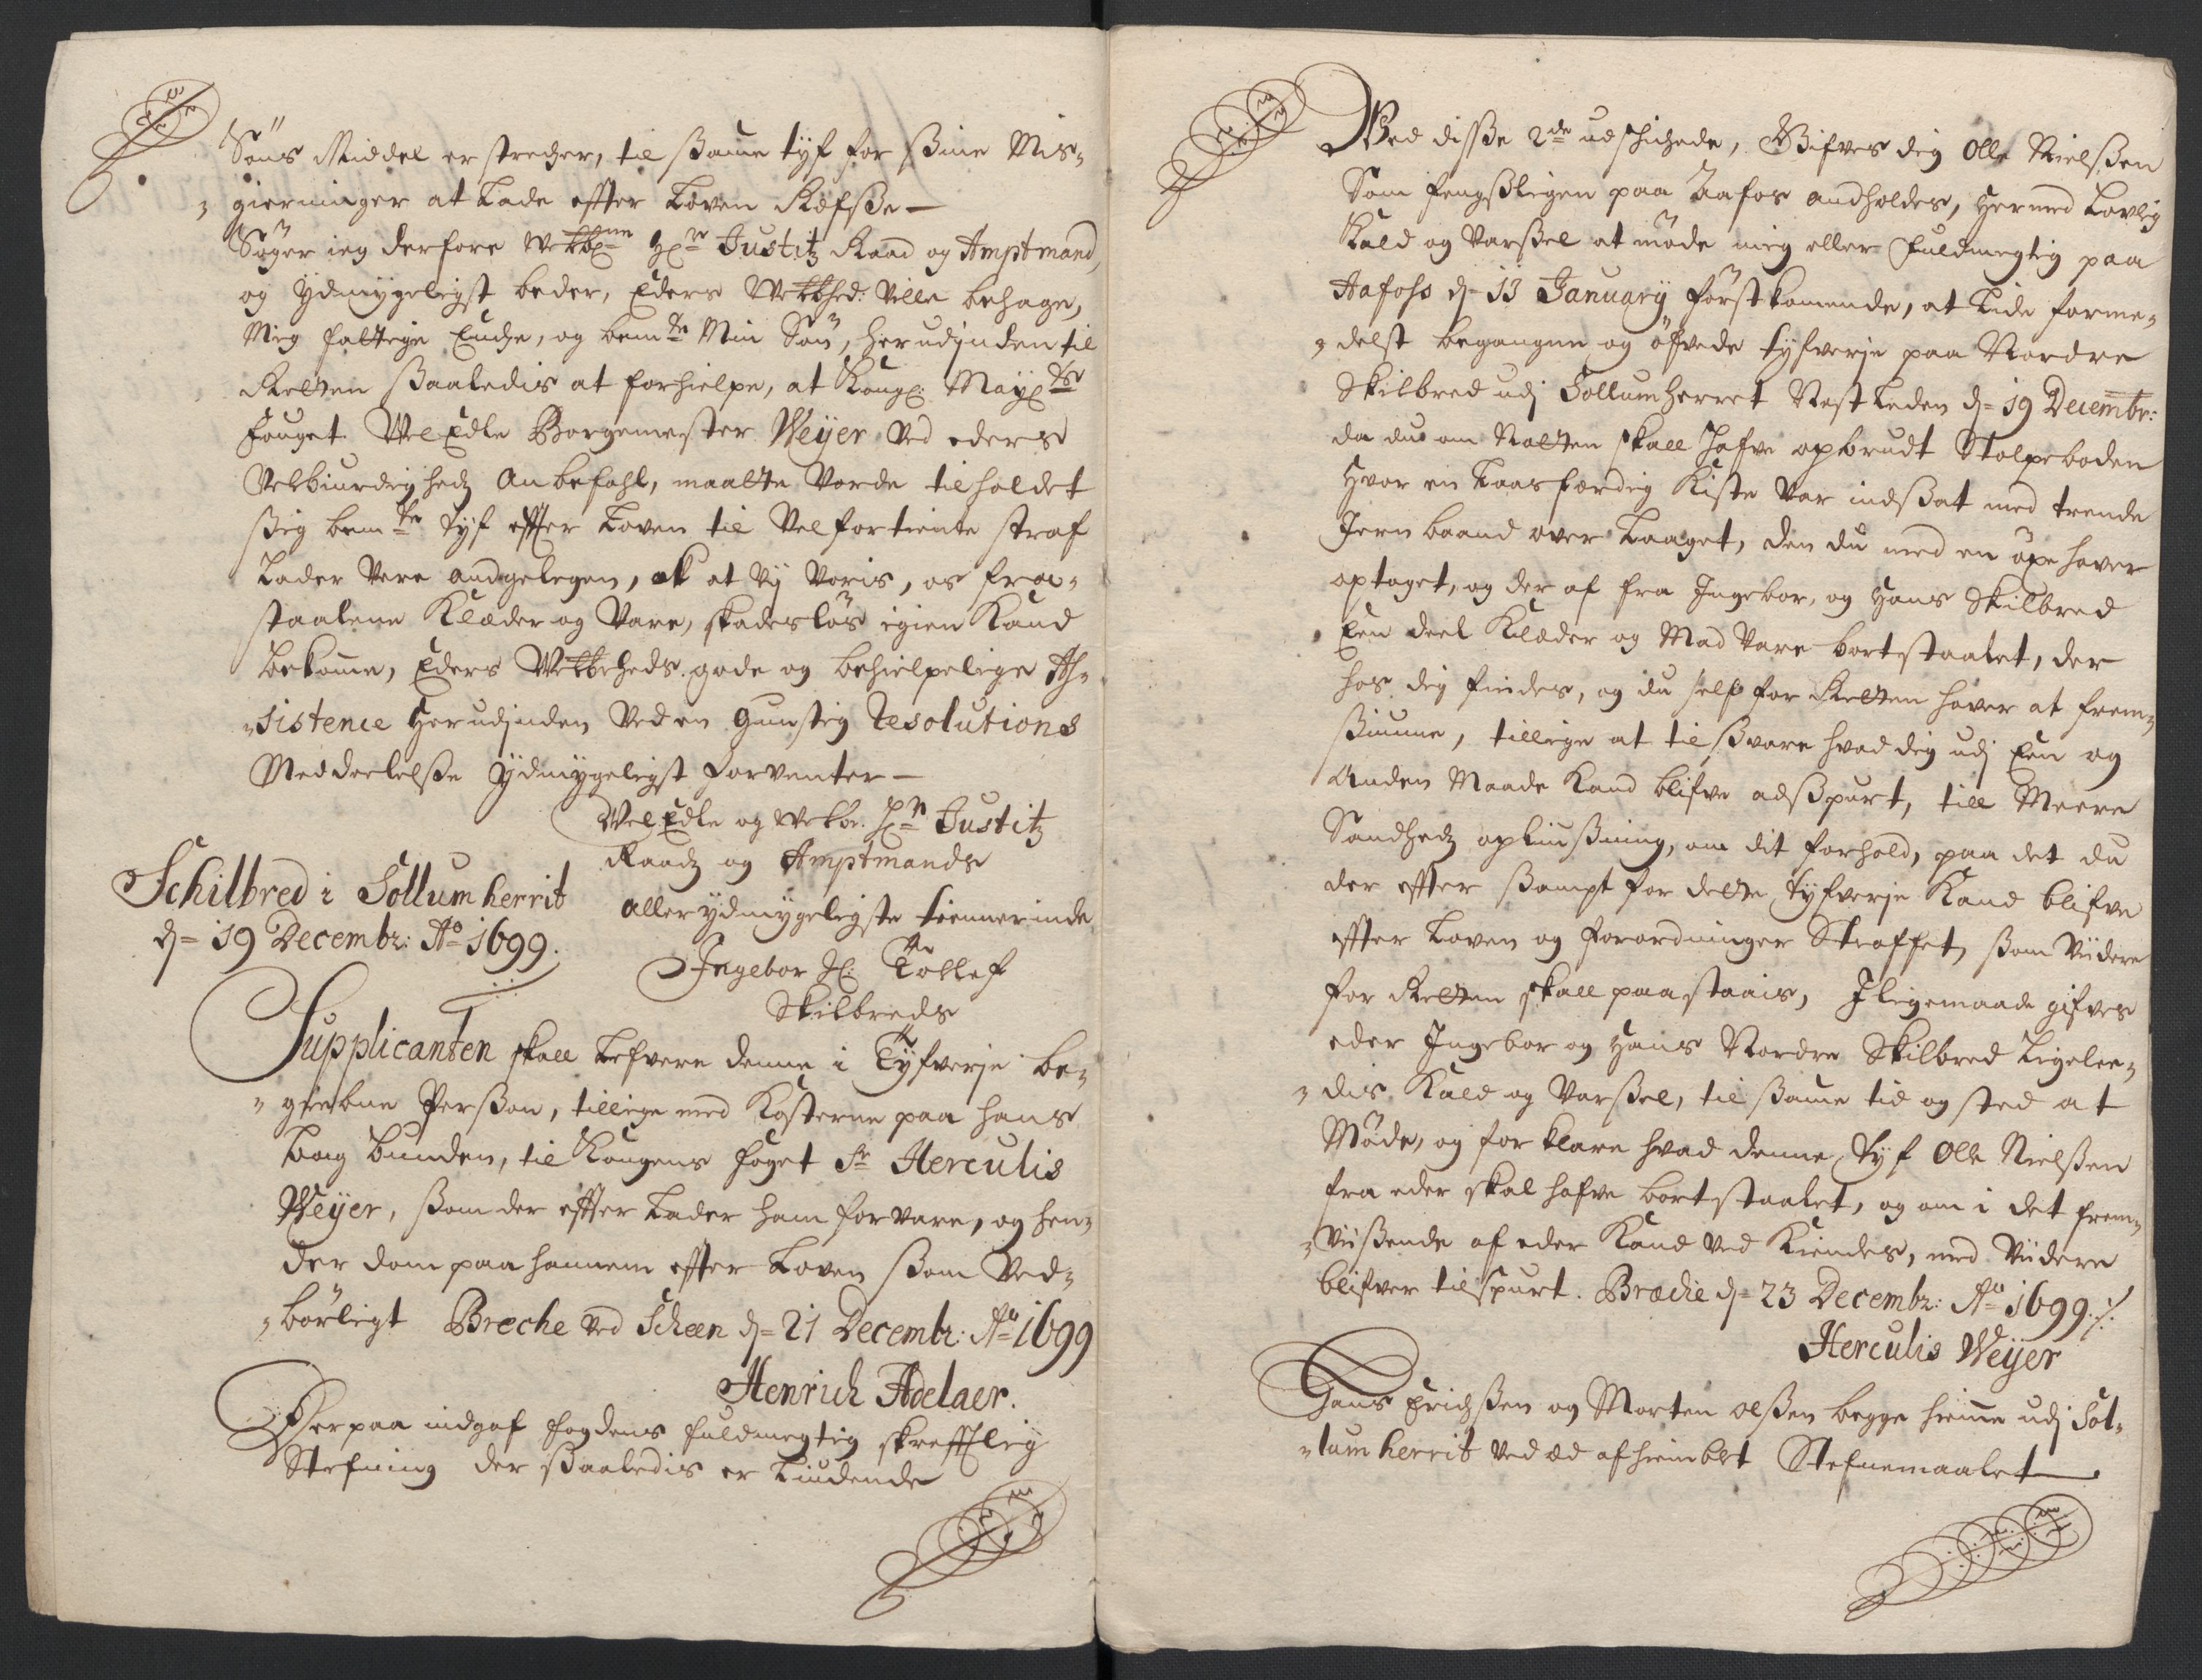 Søns Middel er strecher, til ßamme tyf for ßine Mis-
gierninger at Lade effter Loven Refsße —
Søger ieg derfore Welb: Hr Justitz Raad og Amptmand,
og ÿdmygeligst beder, Eders Welbhed: Ville behage,
Mig fattige Encke, og bemte Min Søn, herudjnden til
Retten ßaaledis at forhielpe, at Kongl: Mayts
Fouget WelEdle Borgemester Weÿer ved eders
Velbiurdighedz Anbefahl, maatte Vorde tilholdet
ßig bemte tyf effter Loven til Velfortiente straf
Lader Vere andgelegen, ok at Vÿ Voris, os fra-
staalene Klæder og Vare, skadesløs igien Kand
bekomme, Eders Welbrheds gode og behielpelige As-
sistence Herudjnden Ved en Gunstig Resolutions
Meddeelelsße ÿdmygeligst Forventer —
WelEdle og Welb: Hr Justitz
Raadz og Amptmands
aller ydmygeligste tiennerinde
Ingebor Sl: Tollef
Skilbreds
Schilbred i Sollumherrit
d= 19 Decembr: Ao 1699.
Supplicanten skall Lefvere denne i Tyfverje be-
grebne Perßon, tillige med Kosterne paa hans
bag bunden, til Kongens foget Sr Herculis
Weÿer, ßom der effter Lader ham forvare, og hen-
der dom paa hannem effter Loven ßom Ved-
børligt Breche ved Scheen d= 21 Decembr: Ao 1699
Henrich Adelaer.
Herpaa indgaf fogdens fuldmegtig skrefftlig
Stefning der ßaaledis er Liudende
Ved disße 2de udschichede, Gifves dig Olle Nielßen
Som fengßligen paa Aafos andholdes, Hermed Lovlig
Kald og Varßel at møde mig eller Fuldmegtig paa
Aafoss d= 13 Januarÿ førstkomende, at Lide forme-
delst begangne og øfvede tyfverje paa Nordre
Skilbred udj Sollumherret Nest Leden d= 19 Decembr:
da du om Natten skall Hafve opbrudt Stolpeboden
Hvor en Laasfærdig Kiste var indßat med trende
Jern baand over Laaget, den du med en øxe haver
optaget, og der af fra Ingebor, og Hans Skilbred
Een deel Klæder og Mad Vare bortstaalet, der
hos dig findes, og du self for Retten haver at frem-
ßiunne, tillige at til ßvare hvad dig udj Een og
Anden Maade Kand blifve adßpurt, till Meere
Sandhedz opliusßning, om dit forhold, paa det du
der effter ßampt for dette tyfverje Kand blifve
effter Loven og Forordninger Straffet, ßom Viidere
for Retten skall paastaais, Jligemaade gifves
eder Ingebor og Hans Nordre Skilbred Ligelee-
dis Kald og Varßel, til ßamme tid og sted at
Møde, og forklare hvad denne Tyf Olle Nielßen
fra eder skal hafve bortstaalet, og om i det frem-
viißende af eder Kand Ved Kiendes, med Viidere
blifver tilspurt. Bræche d= 23 Decembr: Ao 1699 ./.
Herculis Weÿer
Hans Erichßen og Morten Olßen begge hieme udj Sol-
lumherrit ved æd afhiemblet Stefnemaalet —